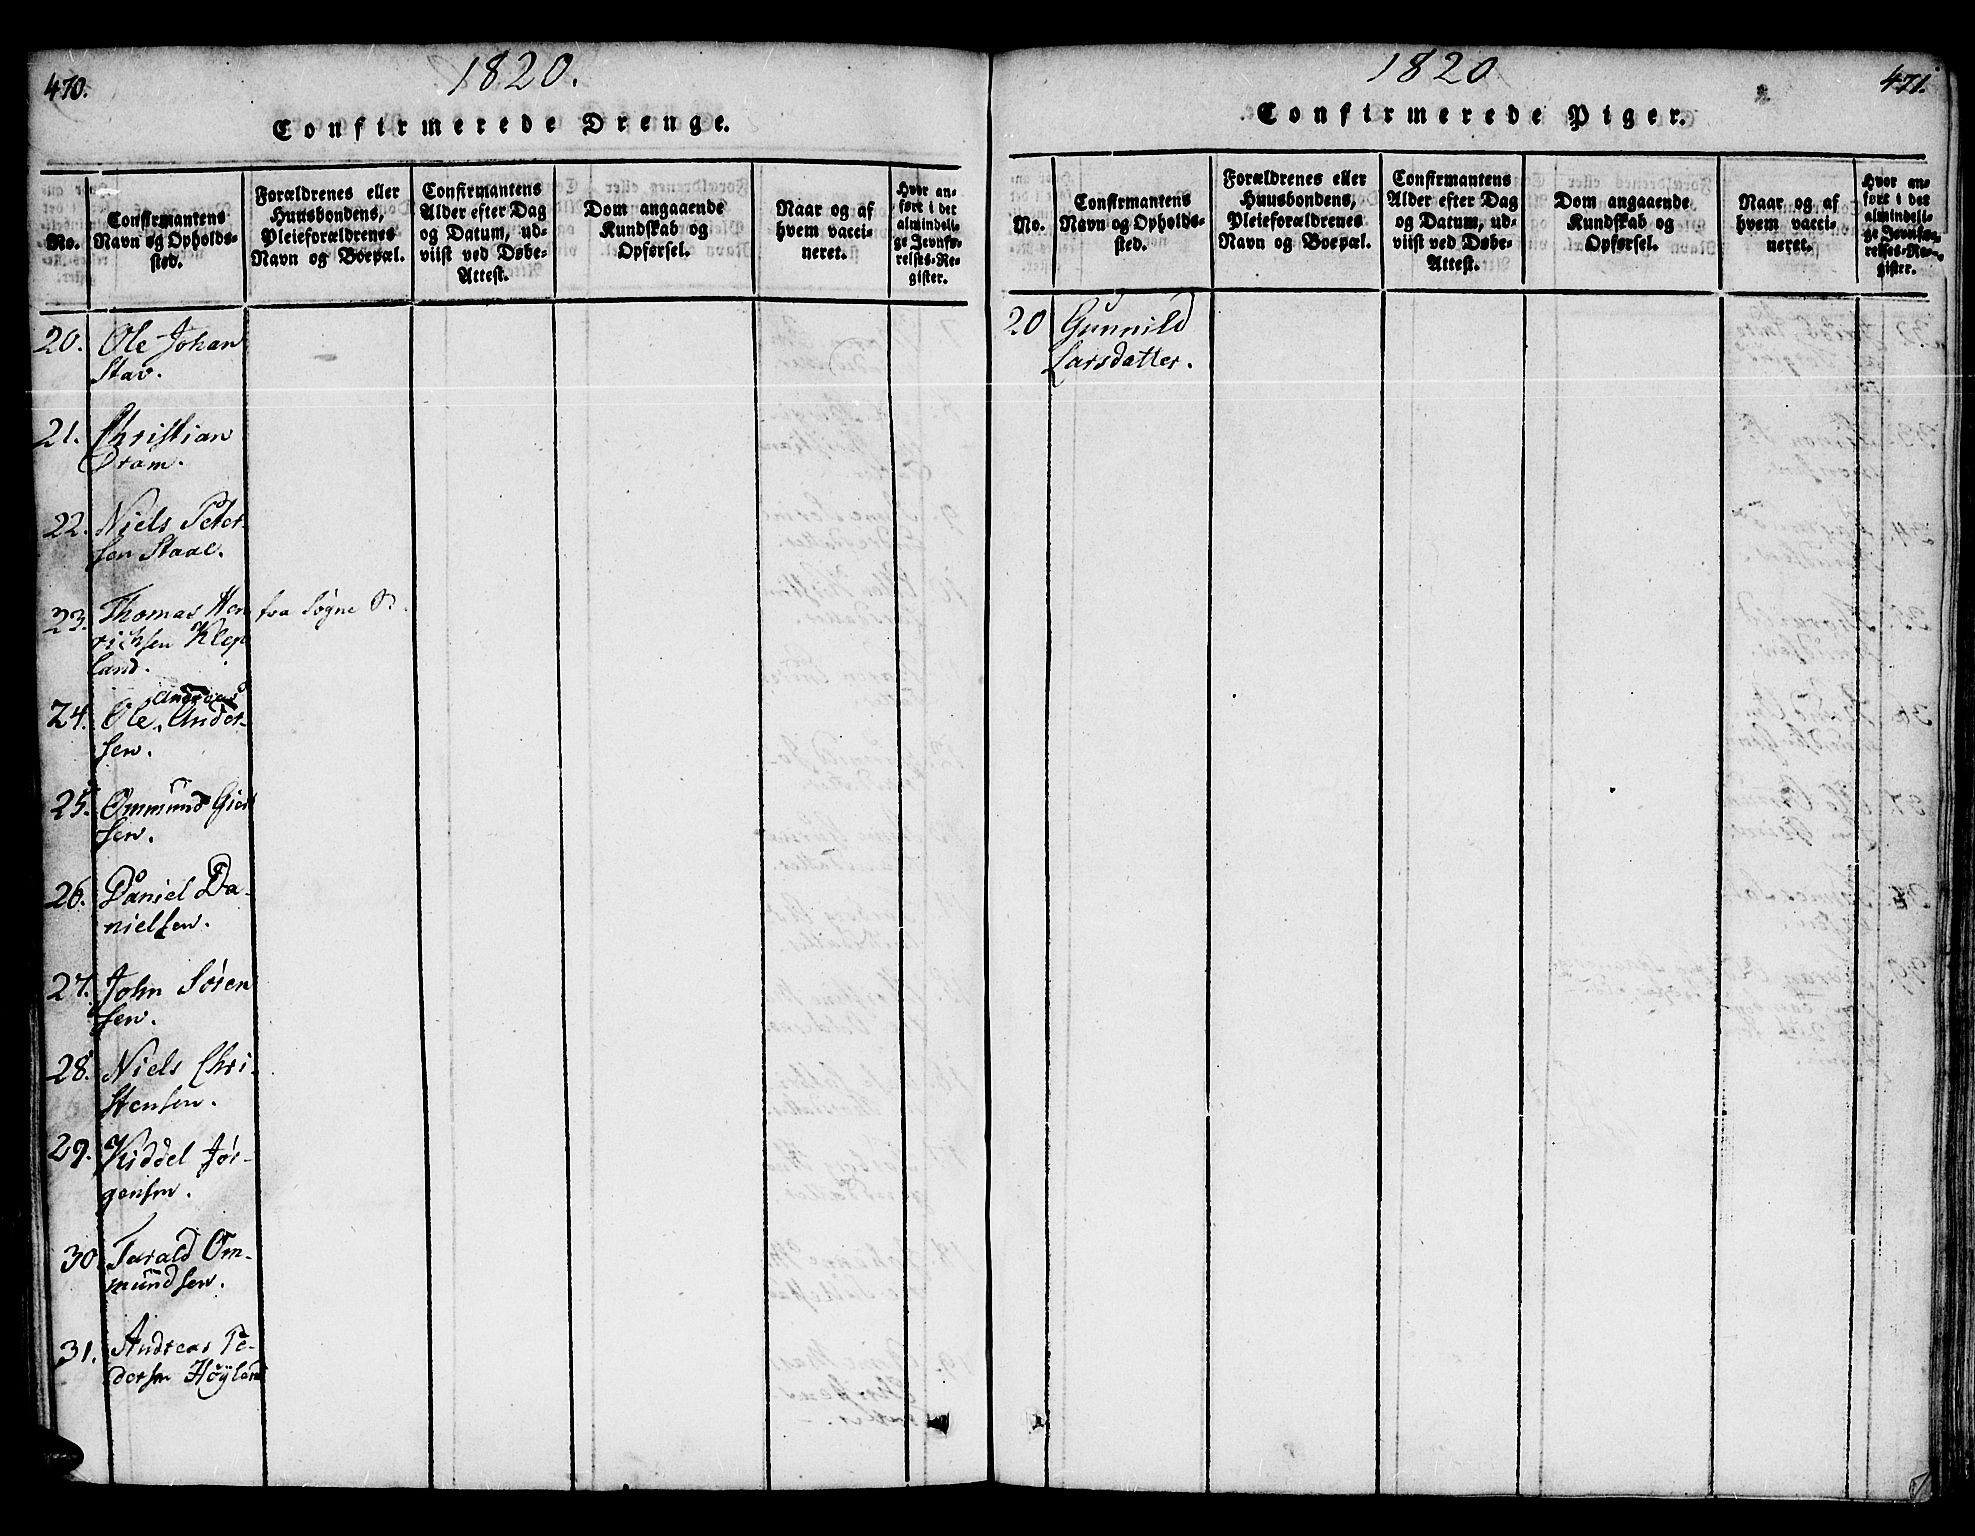 470.
1820.
Confirmerede Drenge.
No.
Confirmantens
Navn og Opholds-
sted.
Forældrenes eller
Huusbondens,
Pleieforældrenes
Navn og Boepæl.
Confirmantens
Alder efter Dag
og Datum, ud-
viist ved Døbe-
Attest.
Dom angaaende
Kundskab og
Opførsel.
Naar og af
hvem vacci-
neret.
Hvor an-
ført i det
almindeli-
ge Jevnfø-
relses-Re-
gister.
20. Ole Johan
Stav.
21. Christian
Dram.
22. Niels Peter-
sen Staal.
23. Thomas Hen fra Søgne
richsen Klep
land.
Andreas
24. Ole Ander-
sen.
25. Ommund Gier
sen.
26. Daniel Da-
nielsen.
27. John Søren
sen.
28. Niels Chri-
stensen.
29. Kiddel Jør-
gensen.
30. Tarald Om-
mundsen.
31. Andreas Pe-
dersen Höyland
1820
471.
Confirmerede Piger.
No.
Confirmantens
Navn og Opholds-
sted.
Forældrenes eller
Huusbondens,
Pleieforældrenes
Navn og Boepæl.
Confirmantens
Alder efter Dag
og Datum, ud-
viist ved Døbe-
Attest.
Dom angaaende
Kundskab og
Opførsel.
Naar og af
hvem vacci-
neret.
Hvor an-
ført i det
almindeli-
ge Jevnfø-
relses-Re-
gister.
20 Gunnild
Larsdatter.